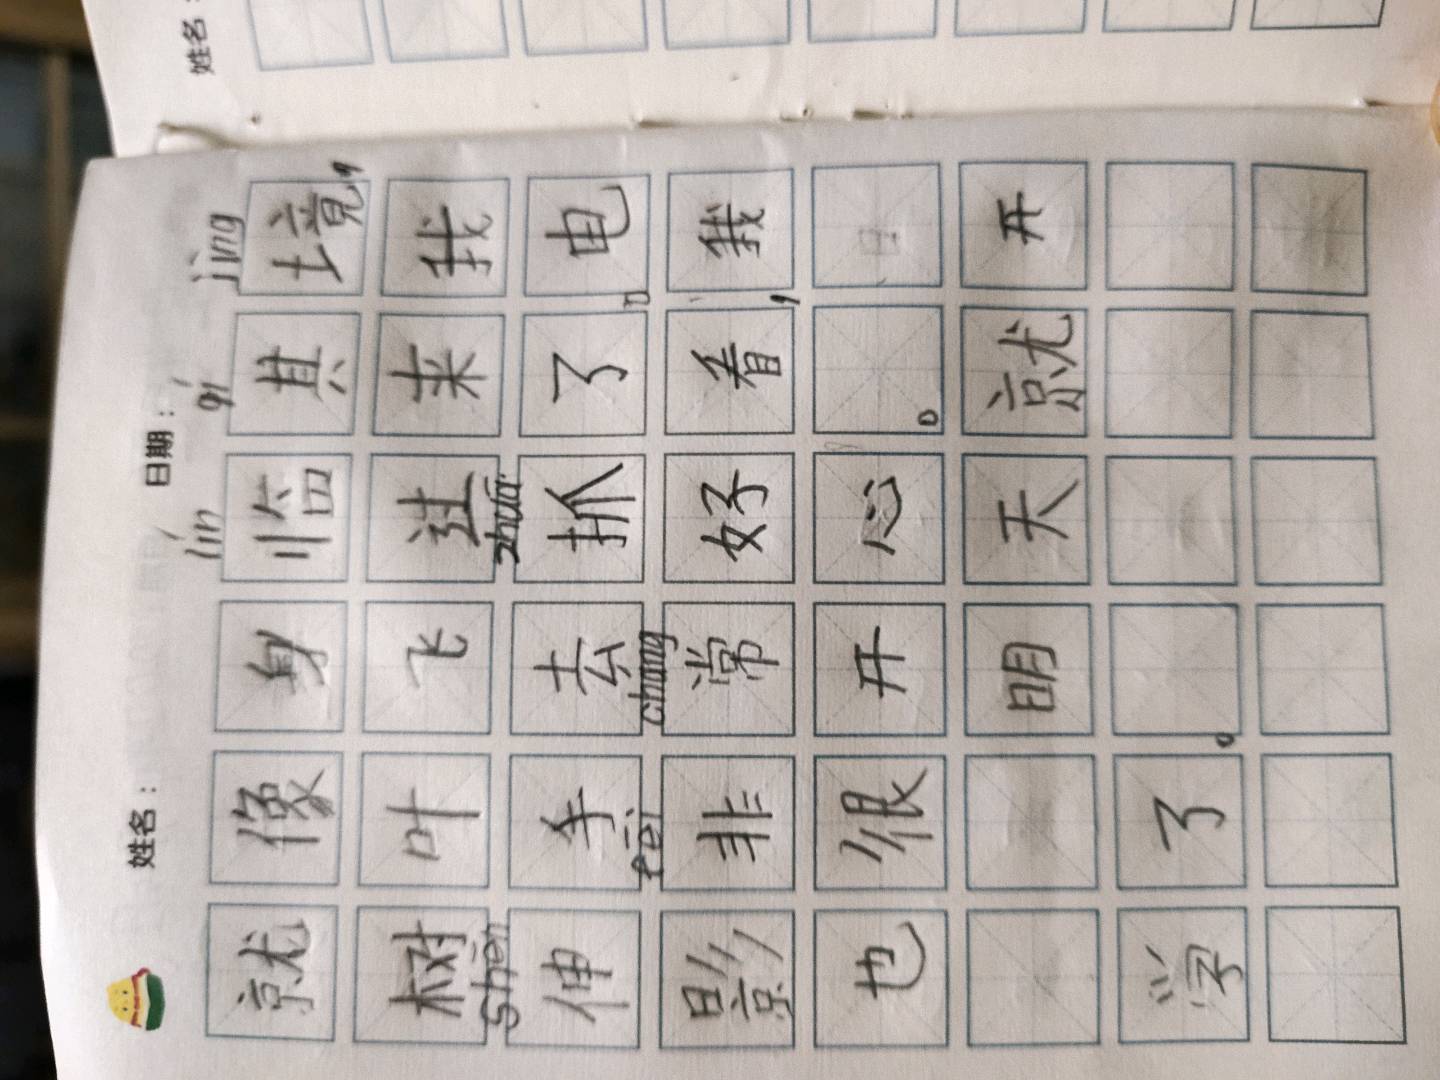 姓名：
姓名： 日期：
lín qí jìng
就像身临其境，
树叶飞进来我
shēn zhuā
伸手去抓了。电
fēi cháng
影非常好看，我
也很开心。
明天就开
学了。